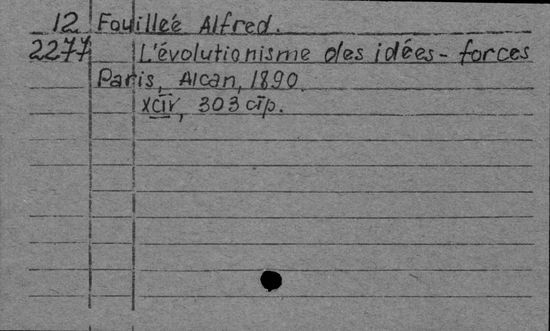 12 Fouilleé Alfred.
2277 L'évolutionisme des idées - forces
Paris, Alcan, 1890.
XCIV, 303 стр.